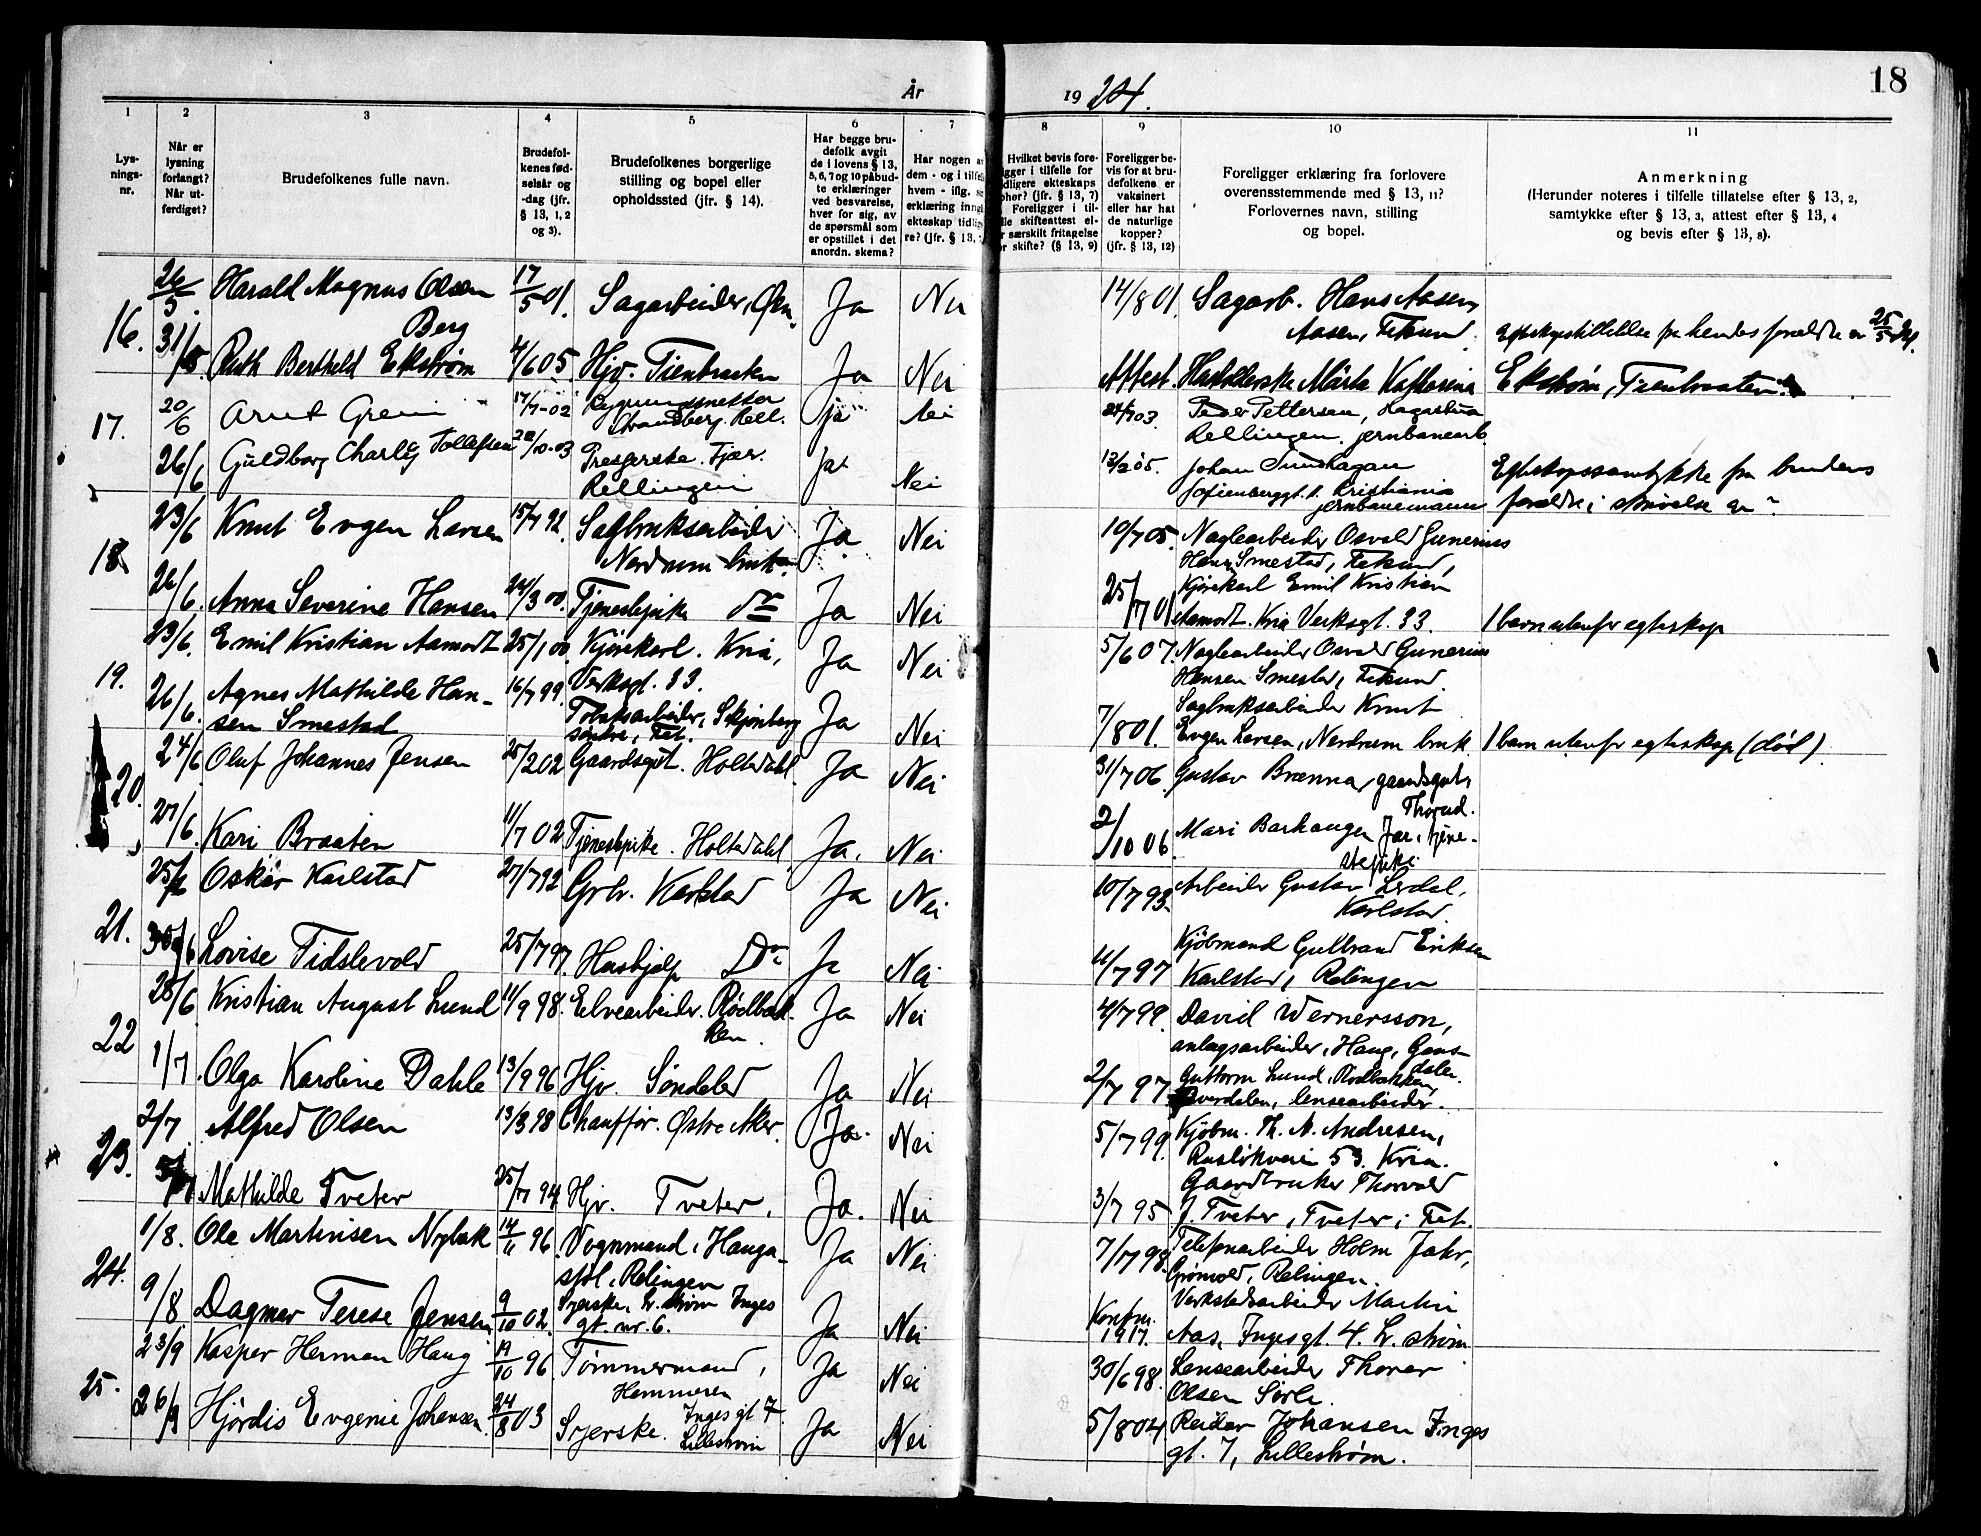 18
År
19 24.
1
2
3
4
5
6
7
8
9
10
11
Lys-
nings-
nr.
Når er
lysning
forlangt?
Når ut-
ferdiget?
Brudefolkenes fulle navn.
Brudefol-
kenes fød-
selsår og
-dag (jfr.
§ 13, 1, 2
og 3).
Brudefolkenes borgerlige
stilling og bopel eller
opholdssted (jfr. § 14).
Har begge bru-
defolk avgit
de i lovens § 13,
5, 6, 7 og 10 påbud-
te erklæringer
ved besvarelse,
hver for sig, av
de spørsmål som
er opstillet i det
anordn. skema?
Har nogen a
dem - og i tilfe
hvem - iflg. s
erklæring inng
ekteskap tidlig
re? (jfr. § 13,
Hvilket bevis fore-
igger i tilfelle for
dligere ekteskaps
phør? (jfr. § 13, 7)
Foreligger i til-
lle skifteattest el-
r særskilt fritagelse
or skifte? (§ 13, 9)
Foreligger be-
vis for at bru-
defolkene er
vaksinert
eller har hat
de naturlige
kopper?
(jfr. § 13, 12)
Foreligger erklæring fra forlovere
overensstemmende med § 13, 11?
Forlovernes navn, stilling
og bopel.
Anmerkning
(Herunder noteres i tilfelle tillatelse efter § 13, 2,
samtykke efter § 13, 3, attest efter § 13, 4
og bevis efter § 13, 8).
16. 26/5. Harald Magnus Olsen 17/5 01. Sagarbeider, Ja Nei 14/8 01 Sagarb. Hans Aasen,
Berg Aasen, Fetsund.
31/5. Ruth Berthold Ekstrøm 4/6 05. Hjv. Tienbraaten Ja Nei Attest. Märta Katharina Ekstrøm, Tienbraaten.
17. 20/6 Arnt Greni 17/7-02 Ja Nei 03. Peder Pettersen,
Strandberg. Rell. Rellingen. jernbanearb.
26/6 Guldborg Charly Tollefsen /10-03 Fjær. Ja Nei 13/2 05. Johan Egteskapssamtykke fra brudens
Rellingen Sofienberggt. Kristiania
jernbanemann
18. 23/6 Knut Evgen Larsen 15/7 92. Sagbruksarbeider Ja Nei 10/7 05. Naglearbeider Osvald Gunerius
Nordrum bruk. Hans. Smestad, Fetsund,
26/6. Anna Severine Hansen 24/3 00. Tjenestepike do Ja Nei 25/7 01 Kjørekarl Emil Kristian
Aamodt. Kria Verksgt. 33. 1 barn utenfor egteskap
19. 23/6. Emil Kristian Aamodt 25/1 00. Kjørekarl. Kria, Ja Nei 5/6 07. Naglearbeider Osvald Gunerius
Verksgt. 33. Hansen Smestad, Fetsund.
26/6. Agnes Mathilde Han- 16/7 99. Tobaksarbeider, Skjønberg Ja Nei 7/8 01. Sagbruksarbeider Knut
sen Smestad søndre, Fet. Evgen Larsen, Nordrum bruk. 1 barn utenfor egteskap (død).
20. 24/6 Oluf Johannes Jensen 25/2 02 Gaardsgut. Holtedahl. Ja Nei 31/7 06. Gustav Brænna, gaardsgut,
Thorud.
27/6. Kari Braaten 11/7 02 Tjenestepike. Holtedahl Ja. Nei 2/10 06. Mari Barhaugen Fær, tjene-
stepike.
21. 25/6 Oskar Karlstad 27/7 92 Grbr. Karlstad Ja Nei 10/7 93. Arbeider Gustav Lerdal,
Karlstad.
30/6 Lovise Tidslevold 25/7 97. Hushjelp Do Ja Nei 11/7 97 Kjøbmand Gulbrand Eriksen
Karlstad, Relingen
22 28/6 Kristian August Lund 11/9 98. Elvearbeider. Rødbak- Ja Nei 4/7 99. David Wernersson,
ken. anlægsarbeider, Haug, Gans-
dalen.
1/7. Olga Karoline Dahle 13/9 96 Hjv. Søndeled Ja Nei 2/7 97 Guttorm Lund, Rødbakken,
lensearbeider.
23. 2/7 Alfred Olsen 13/3 98 Chauffør. Østre Aker. Ja. Nei 5/7 99. Kjøbm. Th. N. Andresen,
Ruseløkveien 53. Kria.
5/7 Mathilde Tveter 25/7 94 Hjv. Tveter, Ja. Nei 3/7 95 Gaardbruker Thorvald
J. Tveter, Tveter i Fet.
24. 1/8. Ole Martinsen Nybak 14/11 96. Vognmand, Hauga- Ja Nei 7/7 98. Telefonarbeider Holm Jahr,
støl, Relingen Grønvold, Relingen.
9/8. Dagmar Terese Jensen 9/10 02. Syerske, L.strøm Inges Ja Nei Konfm. 1917. Verkstedsarbeider Martin
gt. nr. 6. Aas, Ingesgt. 4. L. strøm
25. 23/9 Kasper Herman Haug 19/10 96 Tømmermand, Ja Nei 30/6 98. Lensearbeider Thorer
Hammeren Olsen Sørli.
26/9 Hjørdis Evgenie Johansen 24/8 03 Syerske. Inges gt 7 Ja Nei 5/8 04 Reidar Johansen Inges
Lillestrøm gt. 7, Lillestrøm.